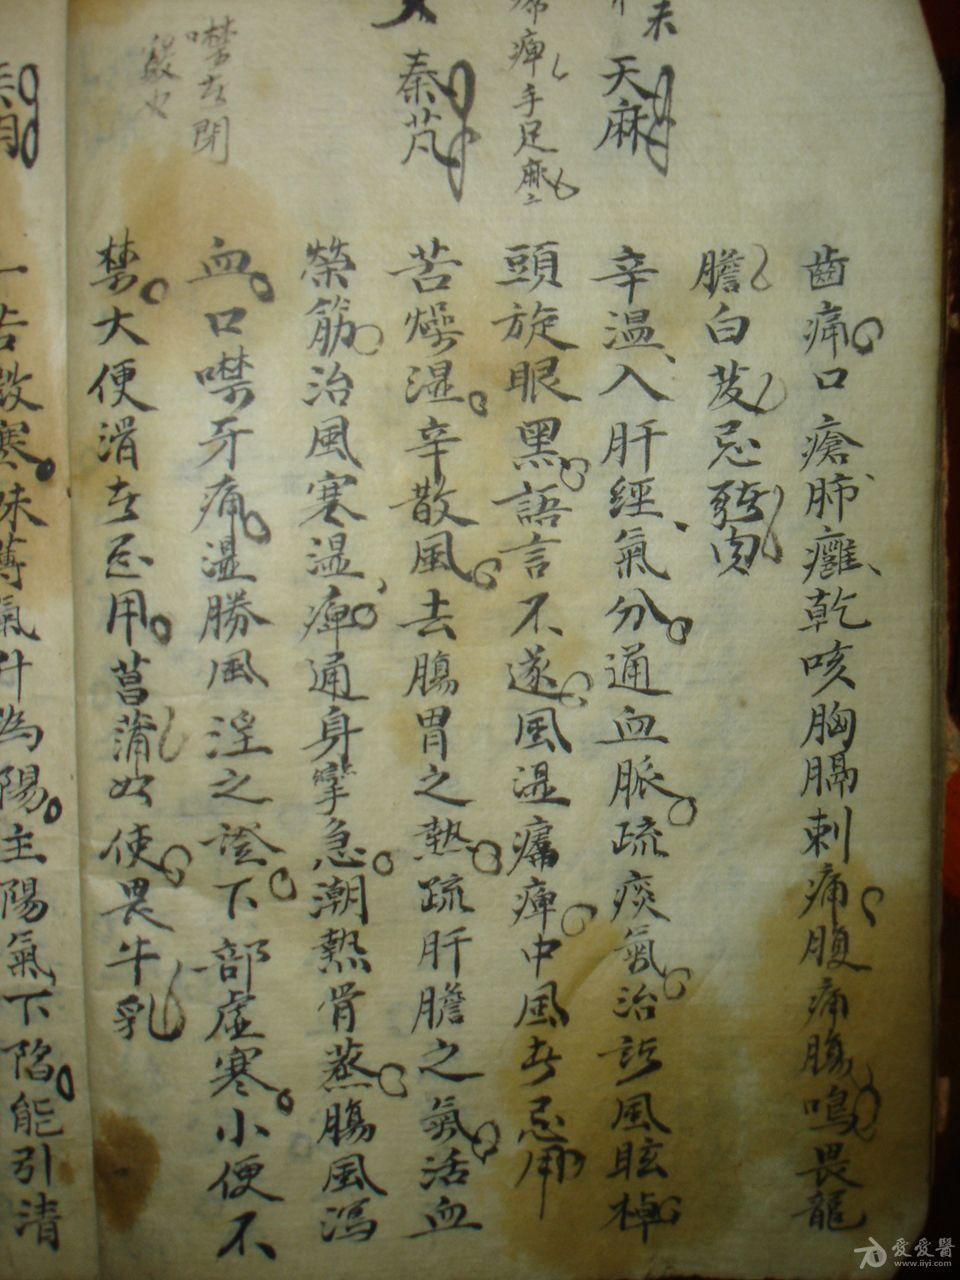 齒痛口瘡肺癰乾咳胸膈刺痛腹痛腸鳴畏龍
膽白芨忌豬肉
天麻
辛温入肝經氣分通血脈疏痰氣治諸風眩掉
痺手足麻
頭旋眼黑語言不遂風湿癱痺中風者忌用
秦艽
苦燥湿辛散風去腸胃之熱疏肝膽之氣活血
榮筋治風寒温痺通身攣急潮熱骨蒸腸風瀉
噤者閉
血口噤牙痛湿勝風淫之證下部虛寒小便不
禁大便滑者忌用菖蒲为使畏牛乳
一苦散寒味薄氣升為陽主陽氣下陷能引清
爱爱醫
www.iiyi.com